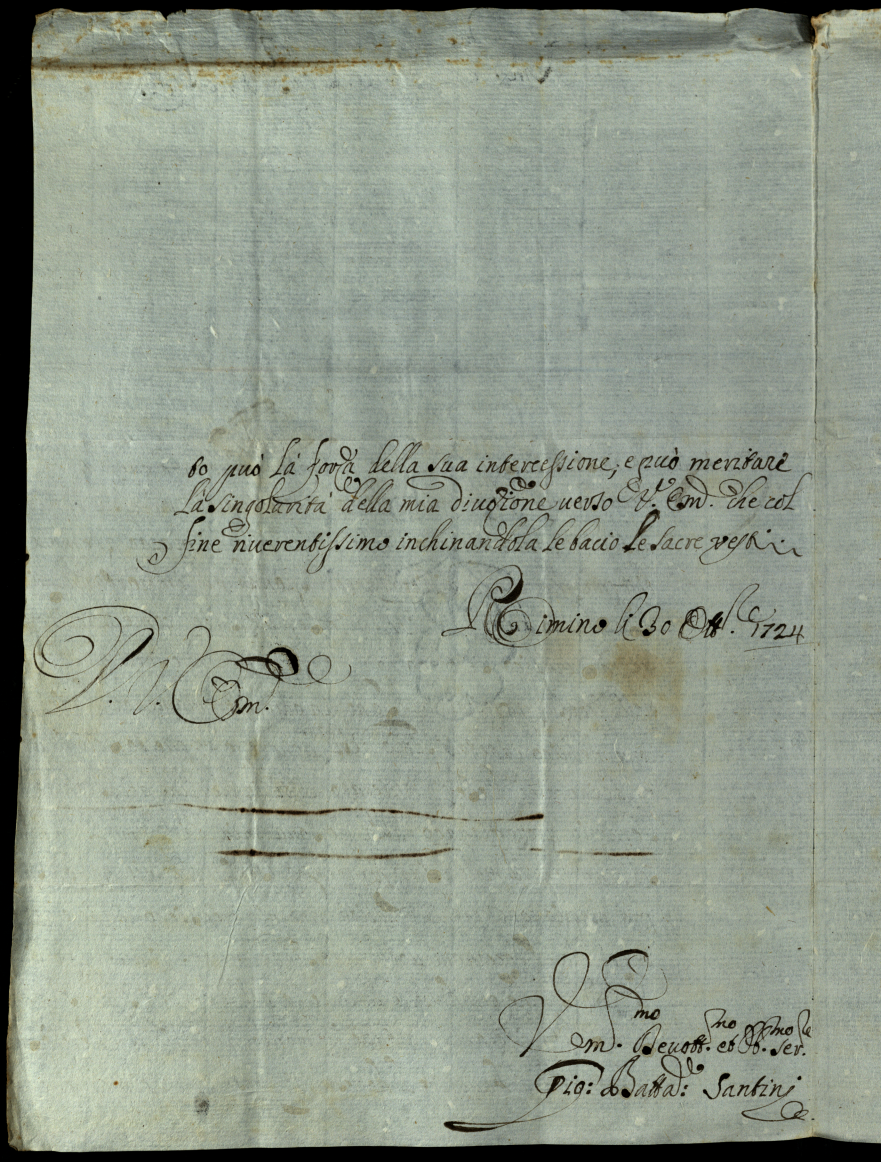 to può la forza della sua intercessione, e può meritare
la singolarità della mia divozione verso V. Em. che col
fine riverentissimo inchinandola le bacio le sacre vesti
Rimino li 30 Ott.e 1724
V. V. Em.
Um.mo Devott.mo et Obb.mo Ser.re
Gio: Batta: Santini